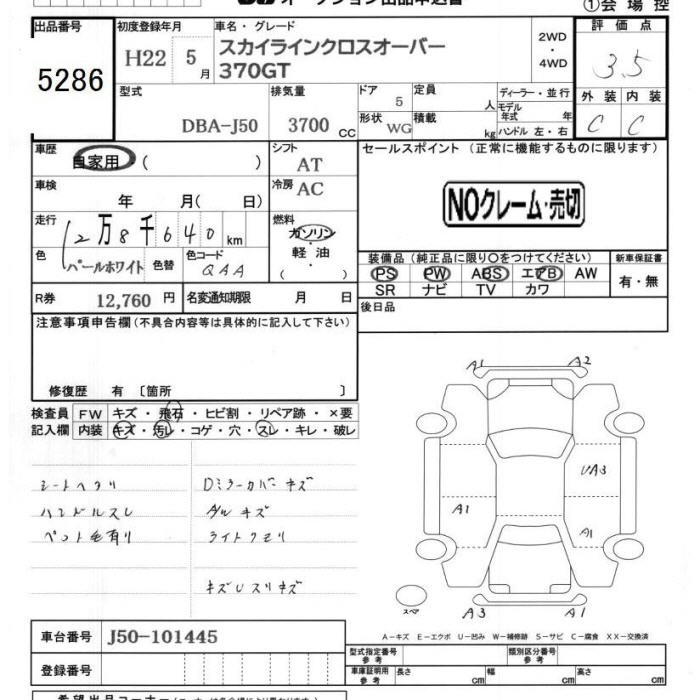 オークション出品申込書
①会場控
出品番号 5286
初度登録年月 H22 5月
車名・グレード スカイラインクロスオーバー
370GT
2WD ・ 4WD
評価点 3.5
外装 C 内装 C
型式 DBA-J50
排気量 3700 CC
ドア 5
形状 WG
定員 人
積載 kg
ディーラー・並行
モデル年式 年
ハンドル 左・右
車歴 自家用 ( )
シフト AT
車検 年 月( 日)
冷房 AC
走行 12万8千640km
燃料 ガソリン・軽油 ( )
色 パールホワイト 色替
色コード QAA
R券 12,760 円
名変通知期限 月 日
セールスポイント (正常に機能するものに限ります)
NOクレーム・売切
装備品 (純正品に限り○をつけてください)
PS PW ABS エアB AW
SR ナビ TV カワ
新車保証書 有・無
後日品
注意事項申告欄 (不具合内容等は具体的に記入して下さい)
修復歴 有 〔箇所 〕
検査員記入欄
FW キズ・飛石・ヒビ割・リペア跡・×要
内装 キズ・汚レ・コゲ・穴・スレ・キレ・破レ
シートヘタリ Dミラーカバーキズ
ハンドルスレ アルミキズ
ペット毛有り ライトクモリ
キズUスリキズ
A1 A2
UA3
A1 A1
スペア A3 A1
A-キズ E-エクボ U-凹み W-補修跡 S-サビ C-腐食 XX-交換済
車台番号 J50-101445
登録番号
型式指定番号 参考 類別区分番号 参考
車庫証明用 参考 長さ cm 幅 cm 高さ cm
希望出品コーナー